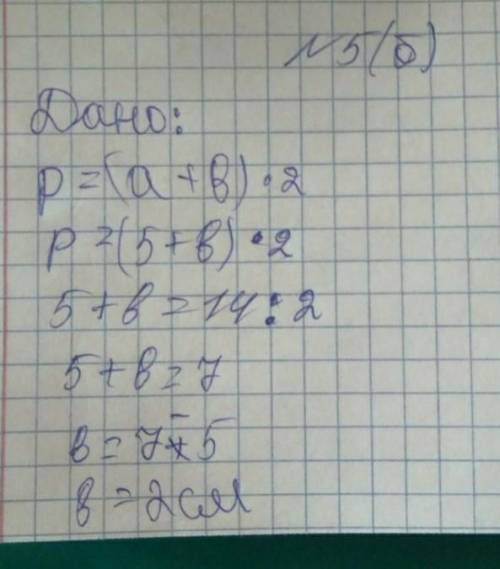 №5(б)
Дано:
P=(a+b)·2
P=(5+b)·2
5+b=14:2
5+b=7
b=7-5
b=2см